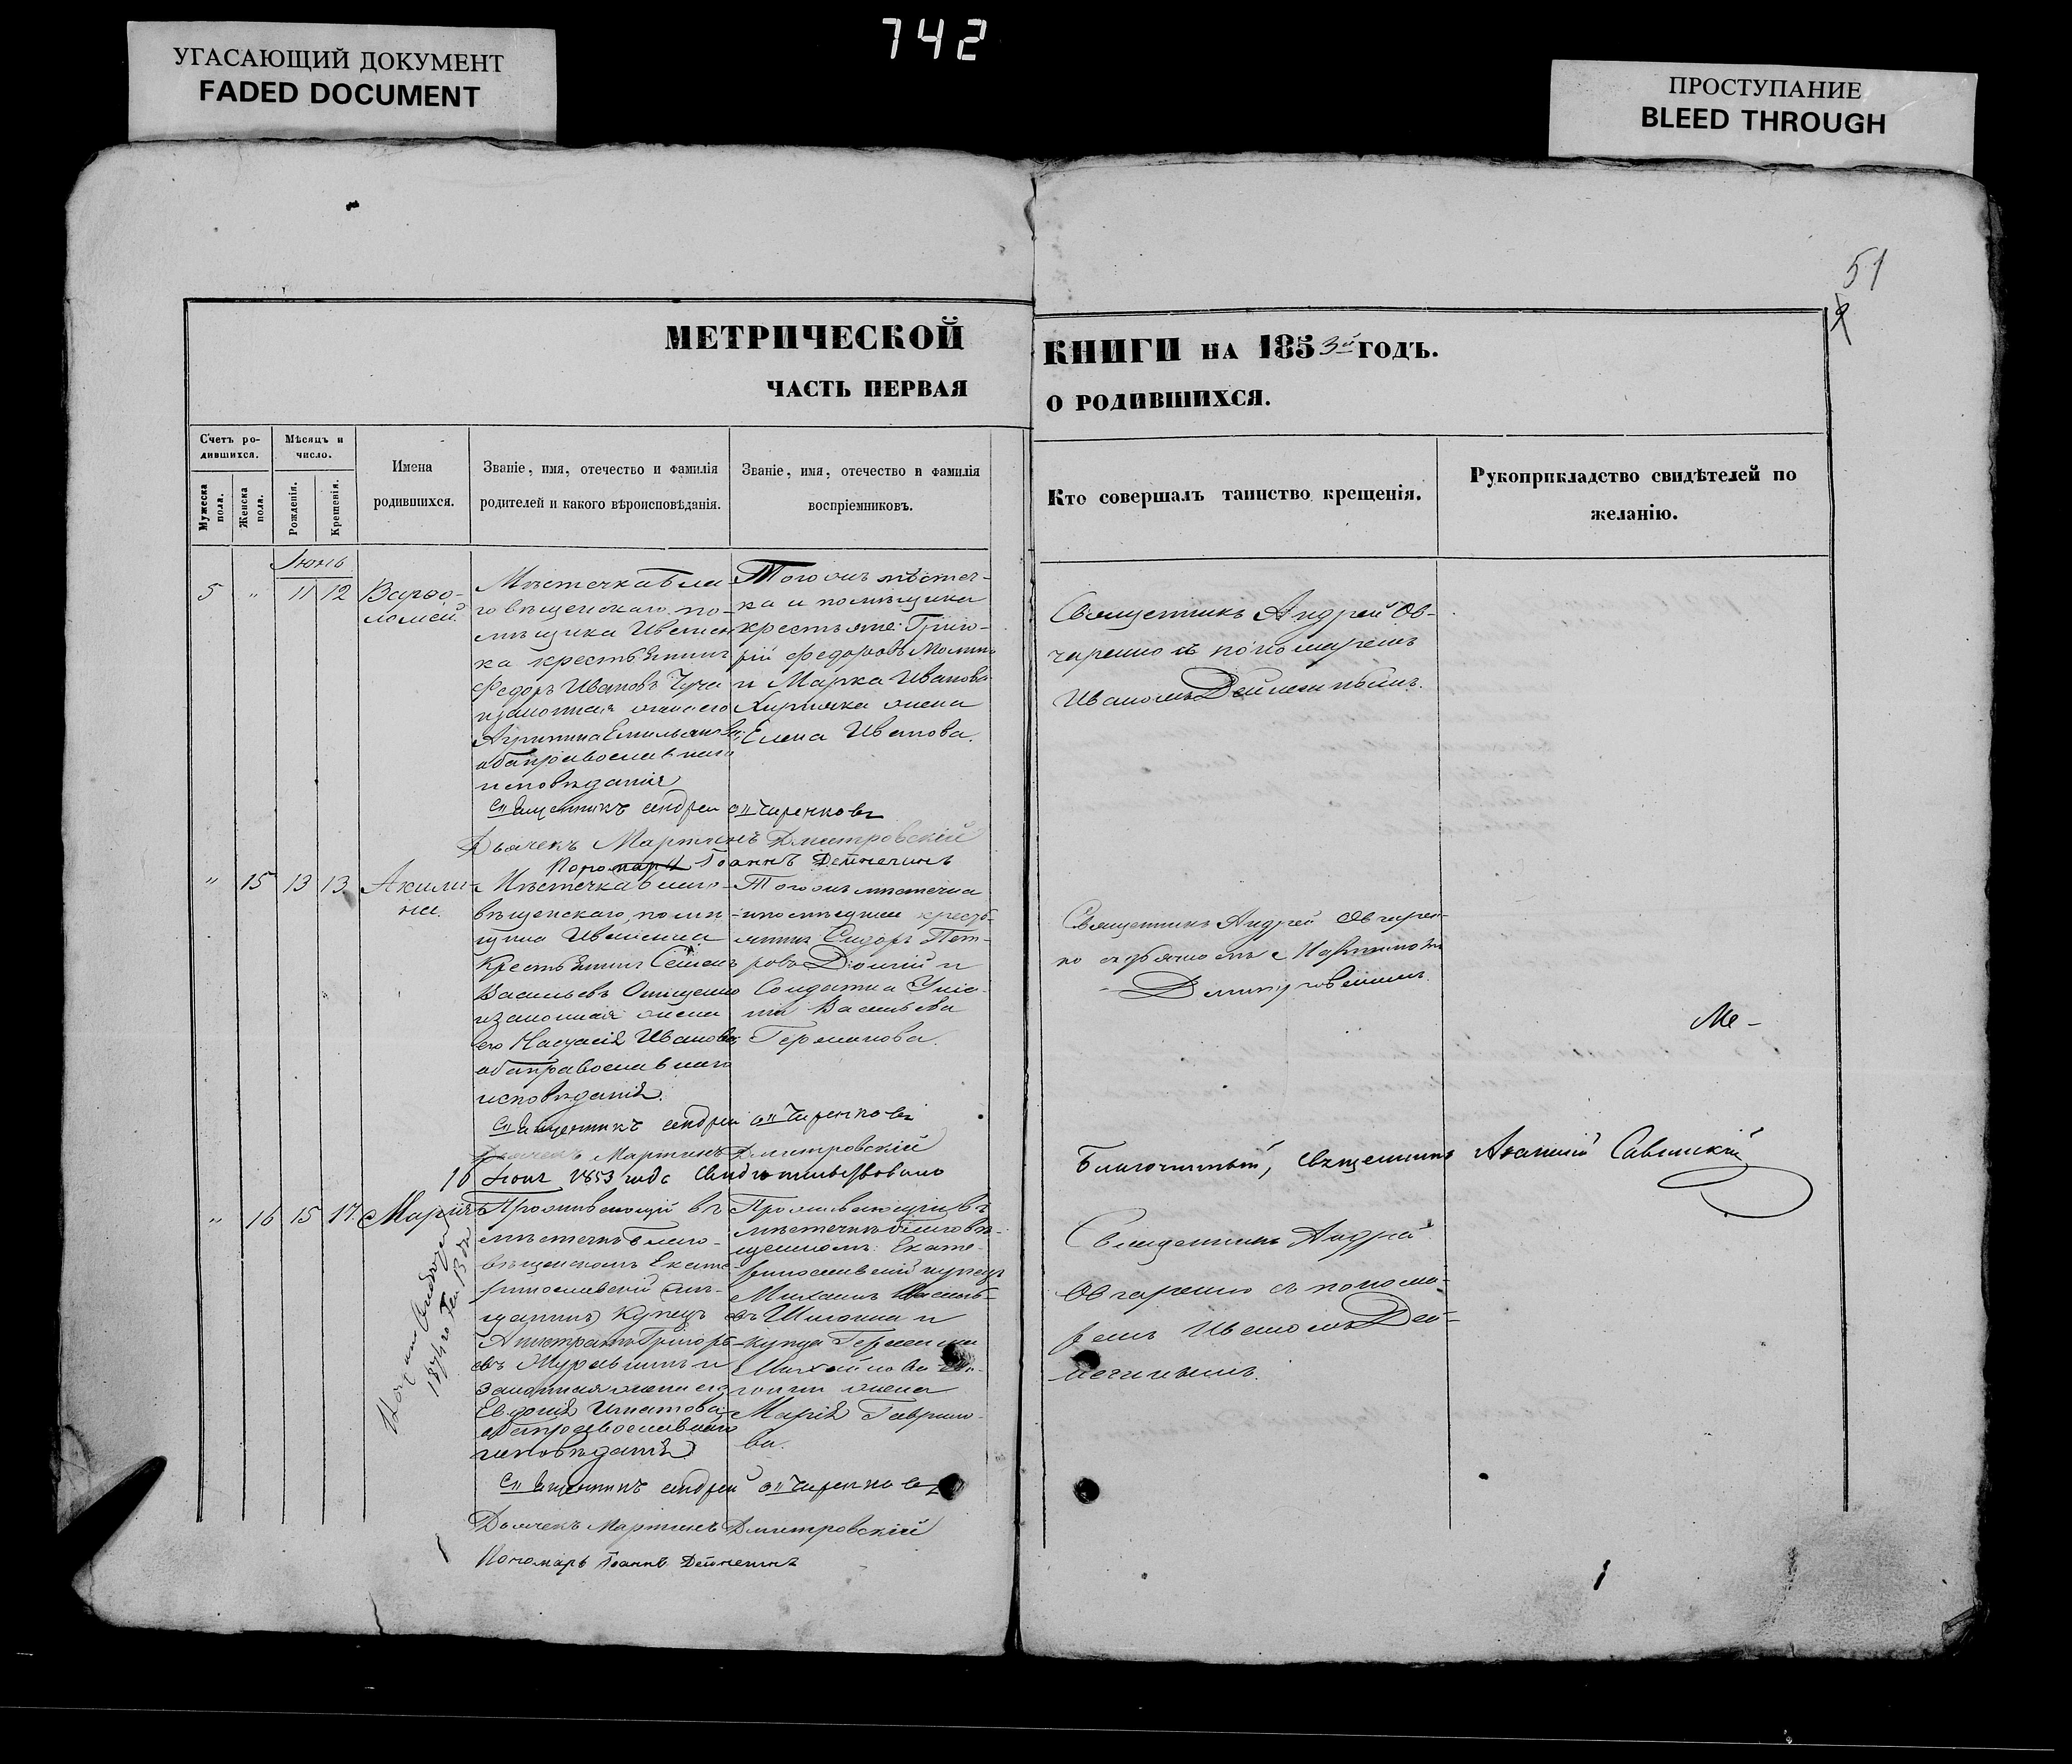 742
УГАСАЮЩИЙ ДОКУМЕНТ
FADED DOCUMENT
ПРОСТУПАНИЕ
BLEED THROUGH
51
МЕТРИЧЕСКОЙ
КНИГИ НА 1853й ГОДЪ.
ЧАСТЬ ПЕРВАЯ
О РОДИВШИХСЯ.
Счетъ ро-
дившихся.
Мужеска пола.
Женска пола.
Мѣсяцъ и
число.
Рожденія.
Крещенія.
Имена
родившихся.
Званіе, имя, отечество и фамилія
родителей и какого вѣроисповѣданія.
Званіе, имя, отечество и фамилія
воспріемниковъ.
Кто совершалъ таинство крещенія.
Рукоприкладство свидѣтелей по
желанію.
Іюнь
5 " 11 12
Варѳо-
ломей.
Мѣстечка Бла-
говѣщенскаго, по-
мѣщика Ивенен
ка крестьянинъ
Федоръ Ивановъ
изаконная жена его
Агрипина Емельянова
оба православнаго
исповѣданія
Тогожъ мѣстеч-
ка и помѣщика
крестьяне: Григо-
рій Федоровъ
и Марка Иванова
жена
Елена Иванова.
Священникъ Андрей Ов-
чаренко съ пономаремъ
Иваномъ Дейнекинымъ.
Священникъ Андрей Овчаренковъ
Дьячекъ Мартинъ Дмитровскій
Пономарь Іоаннъ Дейнекинъ
" 15 13 13
Акили-
на.
Мѣстечка Благо-
вѣщенскаго, помѣ-
щика
Крестьянинъ Семенъ
Васильевъ Онищенко
изаконная жена
его Настасія Иванова,
оба православнаго
исповѣданія.
Тогожъ мѣстечка
ипомѣщика кресть-
янинъ Сидоръ Пет-
ровъ Долгій и
Солдатка
Васильева
Германова.
Священникъ Андрей Овчарен-
ко съ дьячкомъ Мартиномъ
Дмитровскимъ.
Ме-
Священникъ Андрей Овчаренковъ
Дьячекъ Мартинъ Дмитровскій
16 Іюня 1853 года Свидетельствовано
Благочинный, Священникъ Савинскій
" 16 15 17
Марія
Проживающій въ
мѣстечкѣ Благо-
вѣщенскомъ Екате
ринославскій
Купецъ
Григорь-
евъ Муравьинъ и
законная жена его
Евдокія Игнатова,
оба православнаго
исповѣданія
Проживающіи въ
мѣстечкѣ Благовѣ-
щенскомъ: Екате-
ринославскій купецъ
Михаилъ Василь-
евъ и
купца
Михайлова
жена
Марія Гаврило-
ва.
Священникъ Андрей
Овчаренко съ понома-
ремъ Иваномъ Дей-
некинымъ.
Священникъ Андрей Овчаренковъ
Дьячекъ Мартинъ Дмитровскій
Пономарь Іоаннъ Дейнекинъ